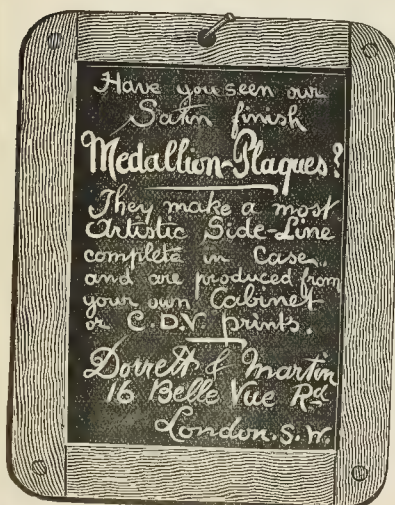 Have you seen our
Satin finish
Medallion-Plaques?
They make a most
Artistic Side-Line
complete in Case,
and are produced from
your own Cabinet
or C.D.V. prints.
Dorrett & Martin
16 Belle Vue Rd
London. S. W.